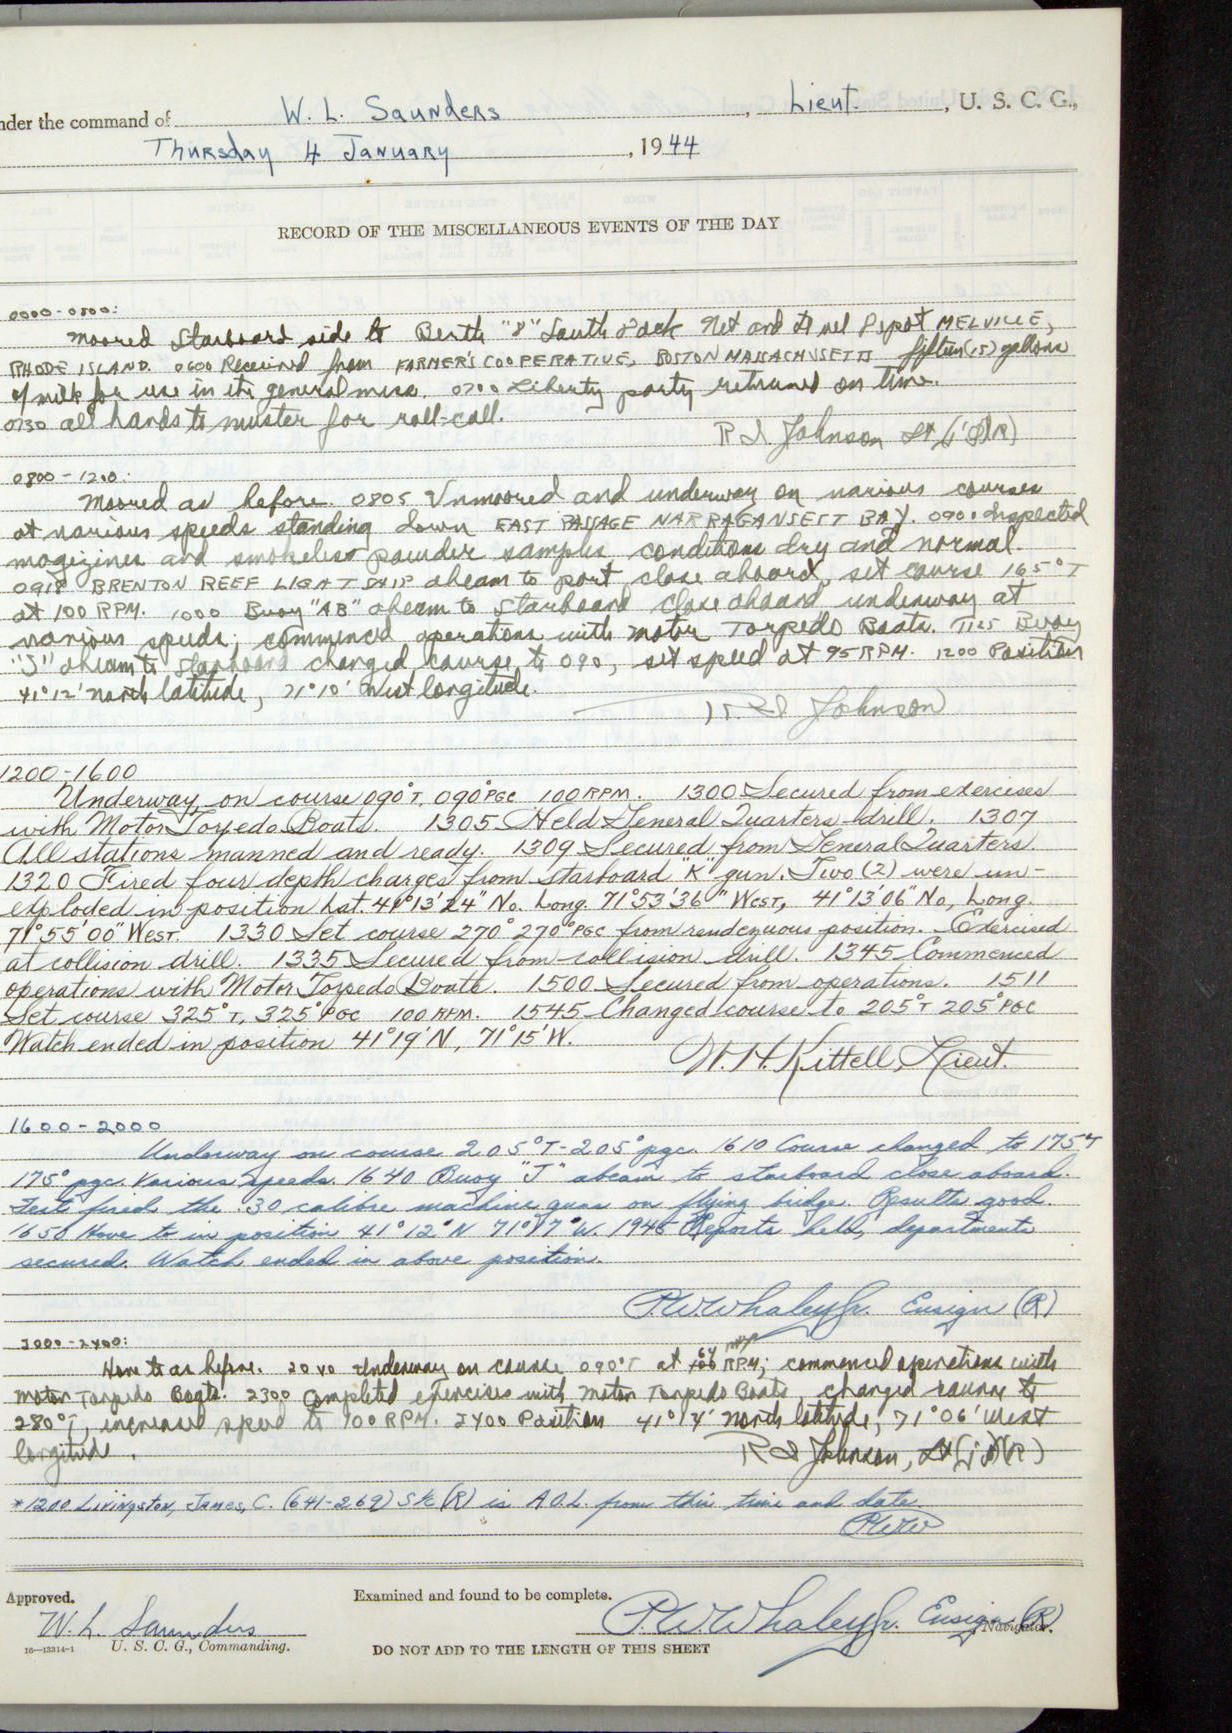 nder the command of W. L. Saunders, Lieut., U. S. C. G.,
Thursday 4 January, 1944
RECORD OF THE MISCELLANEOUS EVENTS OF THE DAY
0000-0800:
Moored Starboard side to Berth "8" South Dock Net and Fuel Depot MELVILLE,
RHODE ISLAND. 0600 Received from FARMER'S COOPERATIVE, BOSTON MASSACHUSETTS fifteen (15) gallons
of milk for use in its general mess. 0700 Liberty party returned on time.
0730 all hands to muster for roll-call.
R I Johnson Lt (jg)(R)
0800-1200:
Moored as before. 0805 Unmoored and underway on various courses
at various speeds standing down EAST PASSAGE NARRAGANSETT BAY. 0900 Inspected
magizines and smokeless powder samples conditions dry and normal.
0918 BRENTON REEF LIGHT SHIP abeam to port, close aboard, set course 165°T
at 100 RPM. 1000 Buoy "AB" abeam to starboard close aboard underway at
various speeds; commenced operations with Motor Torpedo Boats. 1125 Buoy
"J" abeam to starboard changed course to 090, set speed at 95 RPM. 1200 Position
41°12' north latitude, 71°10' West longitude.
R I Johnson
1200-1600
Underway on course 090°T, 090°PGC 100 RPM. 1300 Secured from exercises
with Motor Torpedo Boats. 1305 Held General Quarters drill. 1307
All stations manned and ready. 1309 Secured from General Quarters.
1320 Fired four depth charges from starboard "K" gun. Two (2) were un-
exploded in position Lat. 41°13'24" No. Long. 71°53'36" West, 41°13'06" No, Long.
71°55'00" West. 1330 Set course 270° 270°PGC from rendezvous position. Exercised
at collision drill. 1335 Secured from collision drill. 1345 Commenced
operations with Motor Torpedo Boats. 1500 Secured from operations. 1511
Set course 325°T, 325°PGC 100 RPM. 1545 Changed course to 205°T 205°PGC
Watch ended in position 41°19'N, 71°15'W.
W. H. Kittell, Lieut.
1600-2000
Underway on course 205°T-205°pgc. 1610 Course changed to 175°T
175° pgc. Various speeds. 1640 Buoy "J" abeam to starboard close aboard.
Test fired the .30 calibre machine guns on flying bridge. Results good.
1650 Hove to in position 41°12'N 71°17'W. 1945 Reports held, departments
secured. Watch ended in above position.
P.W. Whaley Jr. Ensign (R)
2000-2400:
Hove to as before. 2040 Underway on course 090°T at 64 RPM; commenced operations with
motor Torpedo Boats. 2300 Completed exercises with motor Torpedo Boats, changed course to
280°T, increased speed to 100 RPM. 2400 Position 41°14' north latitude, 71°06' west
longitude.
R I Johnson, Lt (jg)(R)
*1200 Livingston, James, C. (641-269) S1c (R) is A.O.L. from this time and date
PWW
Approved.
Examined and found to be complete.
W. L. Saunders
P.W. Whaley Jr. Ensign (R)
Navigator.
16—13314-1 U. S. C. G., Commanding.
DO NOT ADD TO THE LENGTH OF THIS SHEET